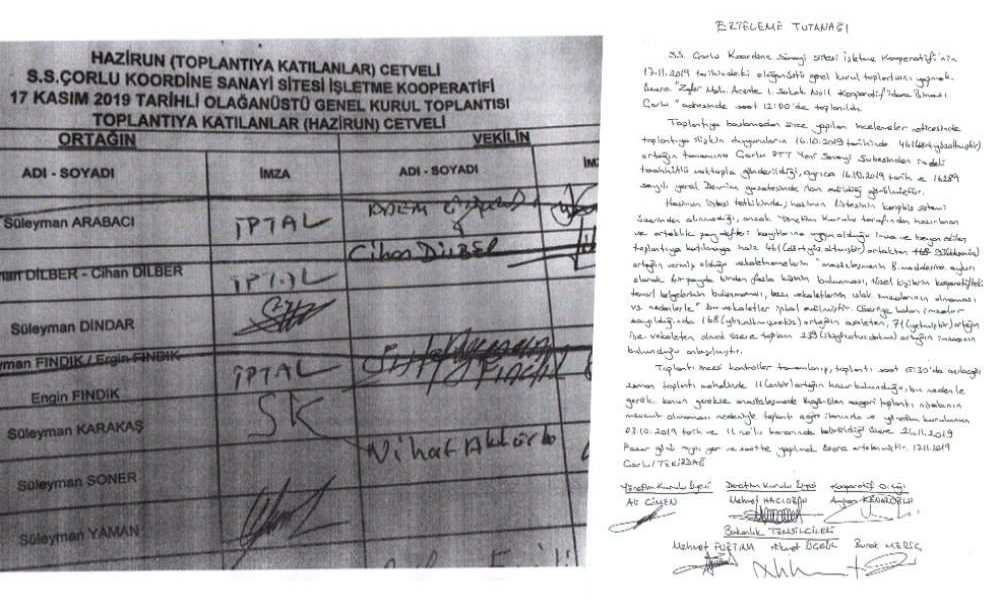 HAZİRUN (TOPLANTIYA KATILANLAR) CETVELİ
S.S.ÇORLU KOORDİNE SANAYİ SİTESİ İŞLETME KOOPERATİFİ
17 KASIM 2019 TARİHLİ OLAĞANÜSTÜ GENEL KURUL TOPLANTISI
TOPLANTIYA KATILANLAR (HAZİRUN) CETVELİ
ORTAĞIN VEKİLİN
ADI - SOYADI İMZA ADI - SOYADI
Süleyman ARABACI İPTAL
DİLBER - Cihan DİLBER İPTAL Cihan DİLBER
Süleyman DİNDAR
FINDIK / Ergin FINDIK İPTAL
Engin FINDIK
Süleyman KARAKAŞ SK
Süleyman SONER Nihat
Süleyman YAMAN
ERTELEME TUTANAĞI
S.S. Çorlu Koordine Sanayi Sitesi İşletme Kooperatifi'nin
17.11.2019 tarihindeki olağanüstü genel kurul toplantısını yapmak
üzere "Zafer Mah. 1. Sokak No:1 Kooperatif İdare Binası
Çorlu" adresinde saat 12:00'de toplanıldı.
Toplantıya başlamadan önce yapılan incelemeler neticesinde
toplantıya ilişkin duyuruların 16.10.2019 tarihinde 461
ortağın tamamına Çorlu PTT Yeni Sanayi Şubesinden iadeli
taahhütlü mektupla gönderildiği, ayrıca 16.10.2019 tarih ve 16289
sayılı yerel Devrim gazetesinde ilan edildiği görülmüştür.
Hazirun listesi tetkikinde; hazirun listesinin sistemi
üzerinden alınmadığı, ancak Yönetim Kurulu tarafından hazırlanan
ve ortaklık pay defteri kayıtlarına uygun olduğu imza ve beyan edilen
toplantıya katılmaya haiz 461 ortaktan
ortağın vermiş olduğu vekaletnamelerin "anasözleşmenin 8. maddesine aykırı
olarak bulunması, tüzel kişilerin
temsil belgelerinin bulunmaması, bazı vekaletlerin ıslak imzalarının olmaması
vs nedenlerle" bu vekaletler iptal edilmiştir. Geriye kalan imzalar
sayıldığında 168 ortağın asaleten, 71 ortağın
ise vekaleten olmak üzere toplam 239 ortağın imzasının
bulunduğu anlaşılmıştır.
Toplantı öncesi kontroller tamamlanıp, toplantı saat 15:30'da açılacağı
zaman toplantı mahallinde 11 ortağın hazır bulunduğu, bu nedenle
gerek kanun gerekse anasözleşmede asgari toplantı nisabının
mevcut olmaması nedeniyle toplantı ve yönetim kurulunun
03.10.2019 tarih ve 11 no'lu kararında belirtildiği üzere 24.11.2019
Pazar günü aynı yer ve saatte yapılmak üzere ertelenmiştir. 17.11.2019
Çorlu/TEKİRDAĞ
Yönetim Kurulu Üyesi Denetim Kurulu Üyesi Kooperatif Ortağı
Ali ÇİMEN Mehmet
Bakanlık TEMSİLCİLERİ
Mehmet FIRTINA Ahmet Burak